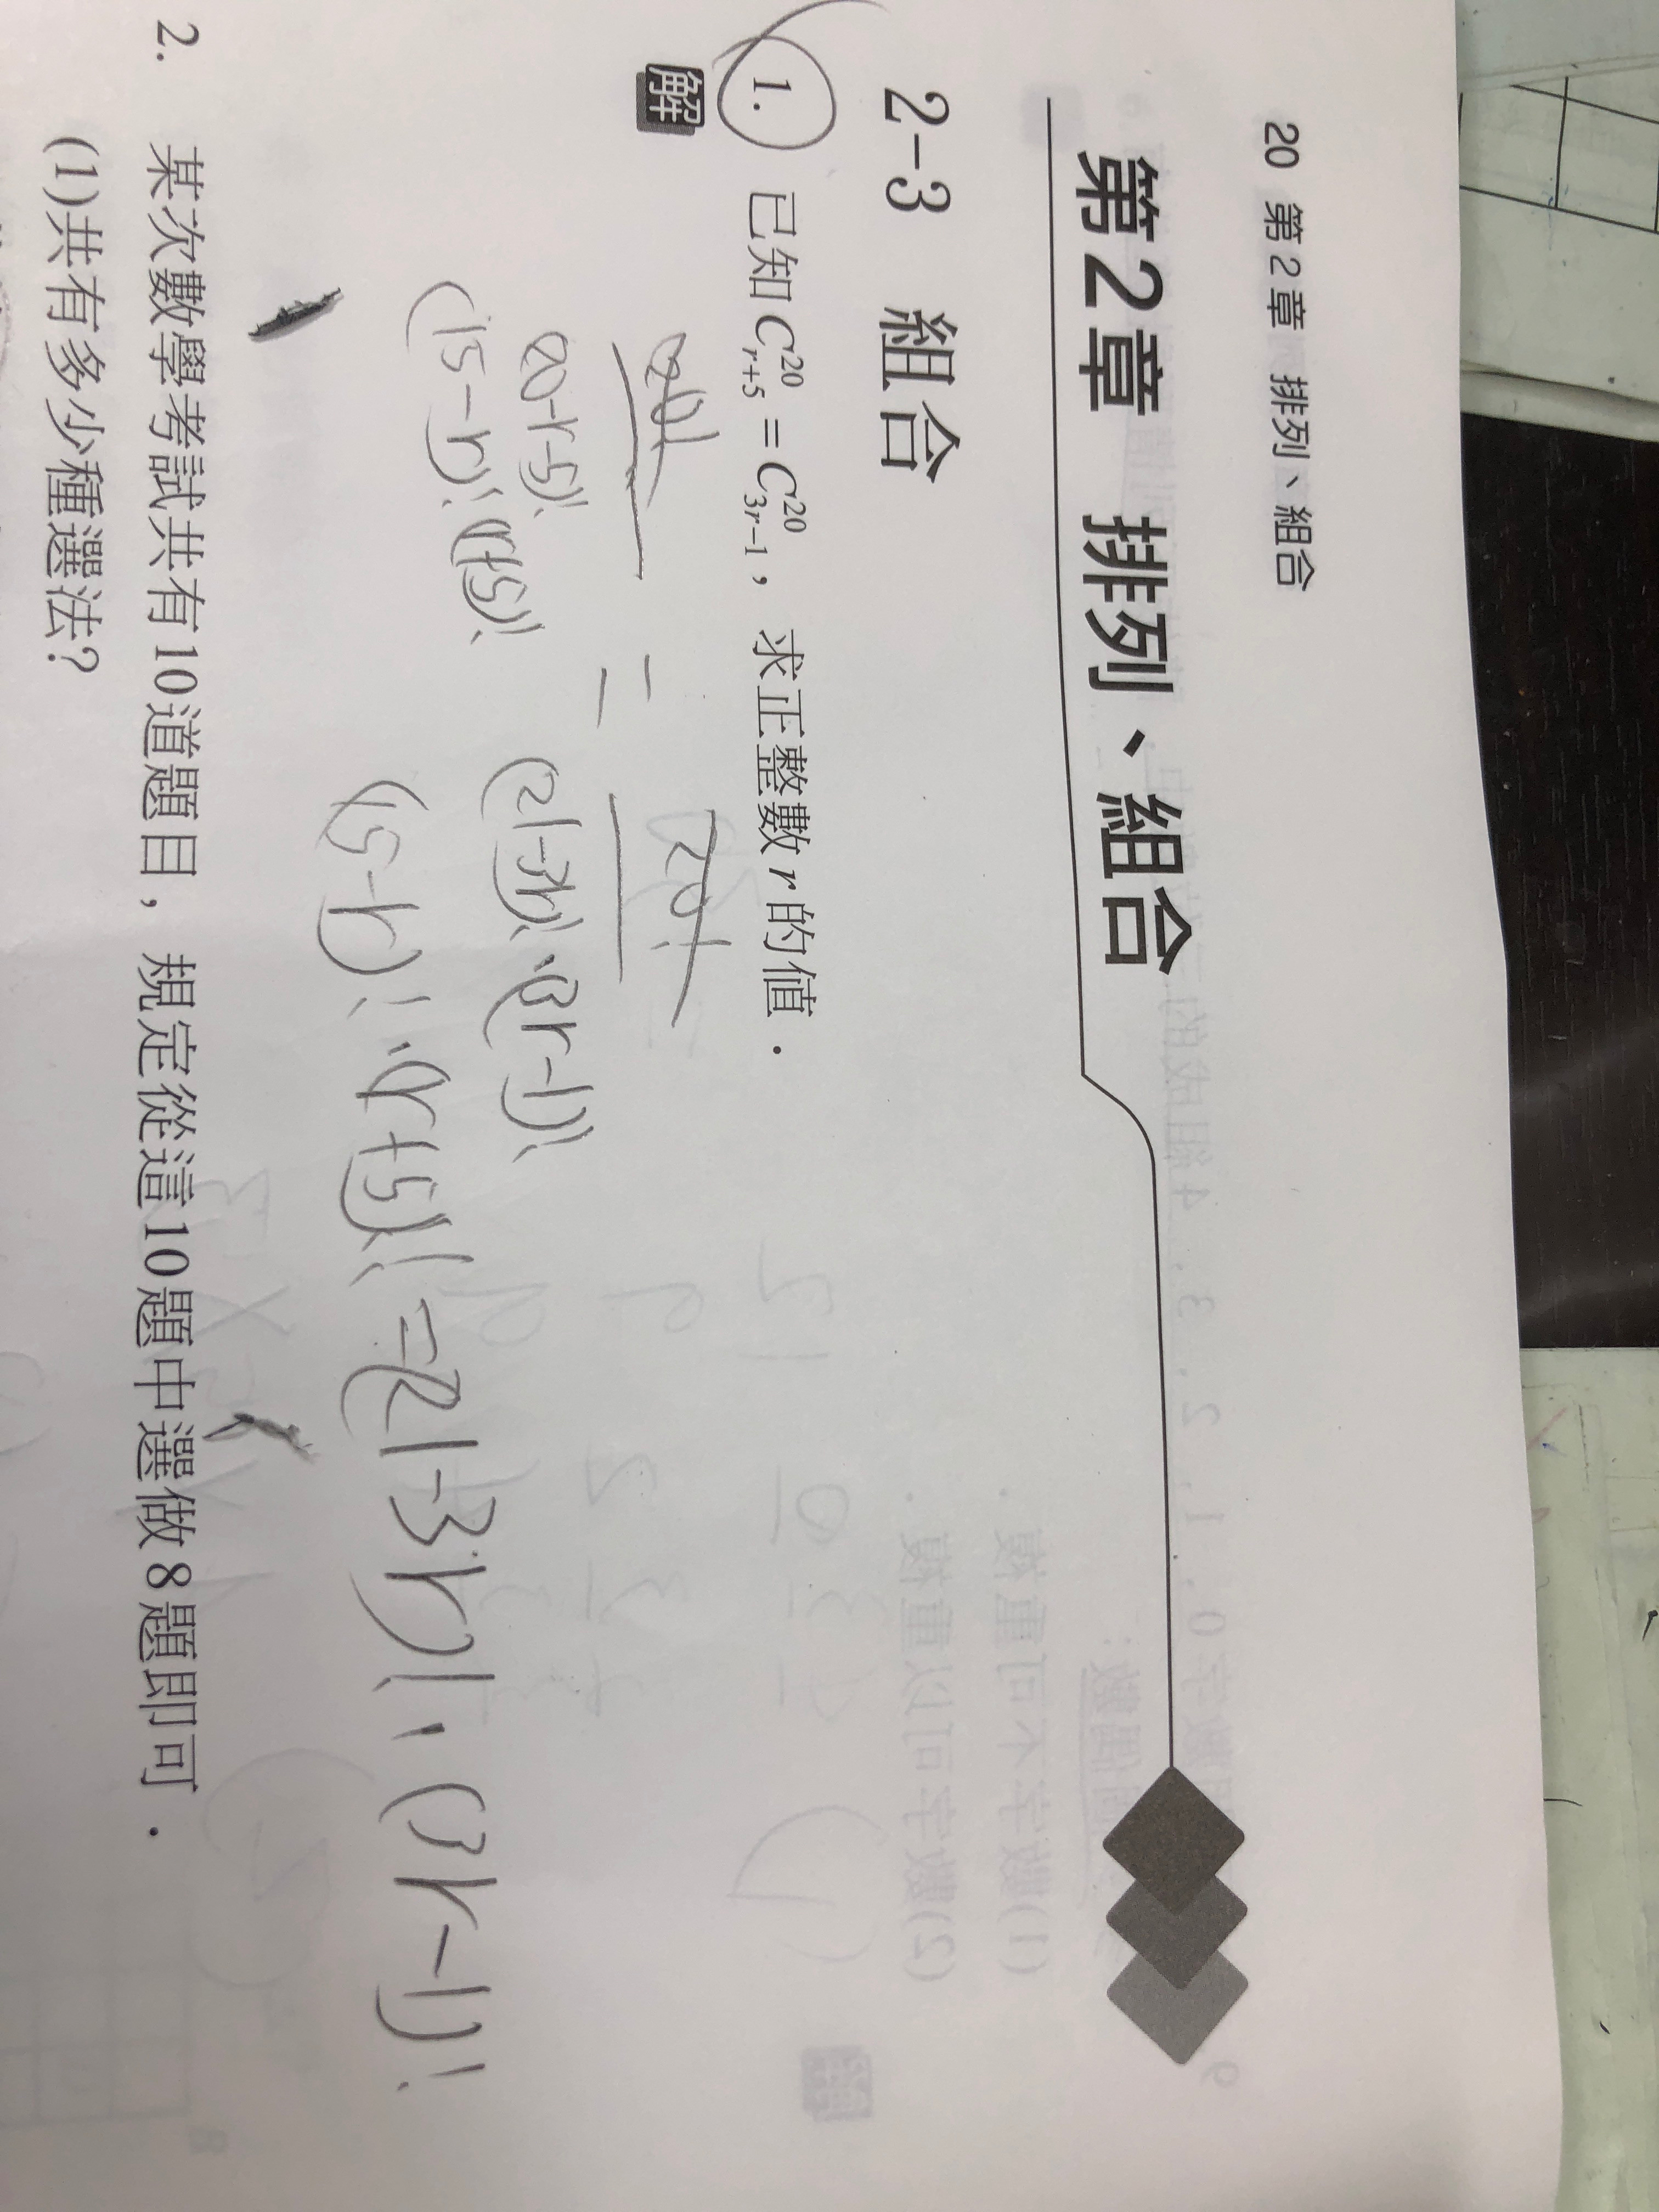 20 第2章 排列、組合
第2章 排列、組合
2-3 組合
1. 已知 C²⁰ᵣ₊₅ = C²⁰₃ᵣ₋₁，求正整數 r 的值．
解
20! = 20!
(20-r-5)! (21-3r)!·(3r-1)!
(15-r)!(r+5)!
(15-r)!·(r+5)! = (21-3r)!·(3r-1)!
2. 某次數學考試共有10道題目，規定從這10題中選做8題即可．
(1)共有多少種選法？